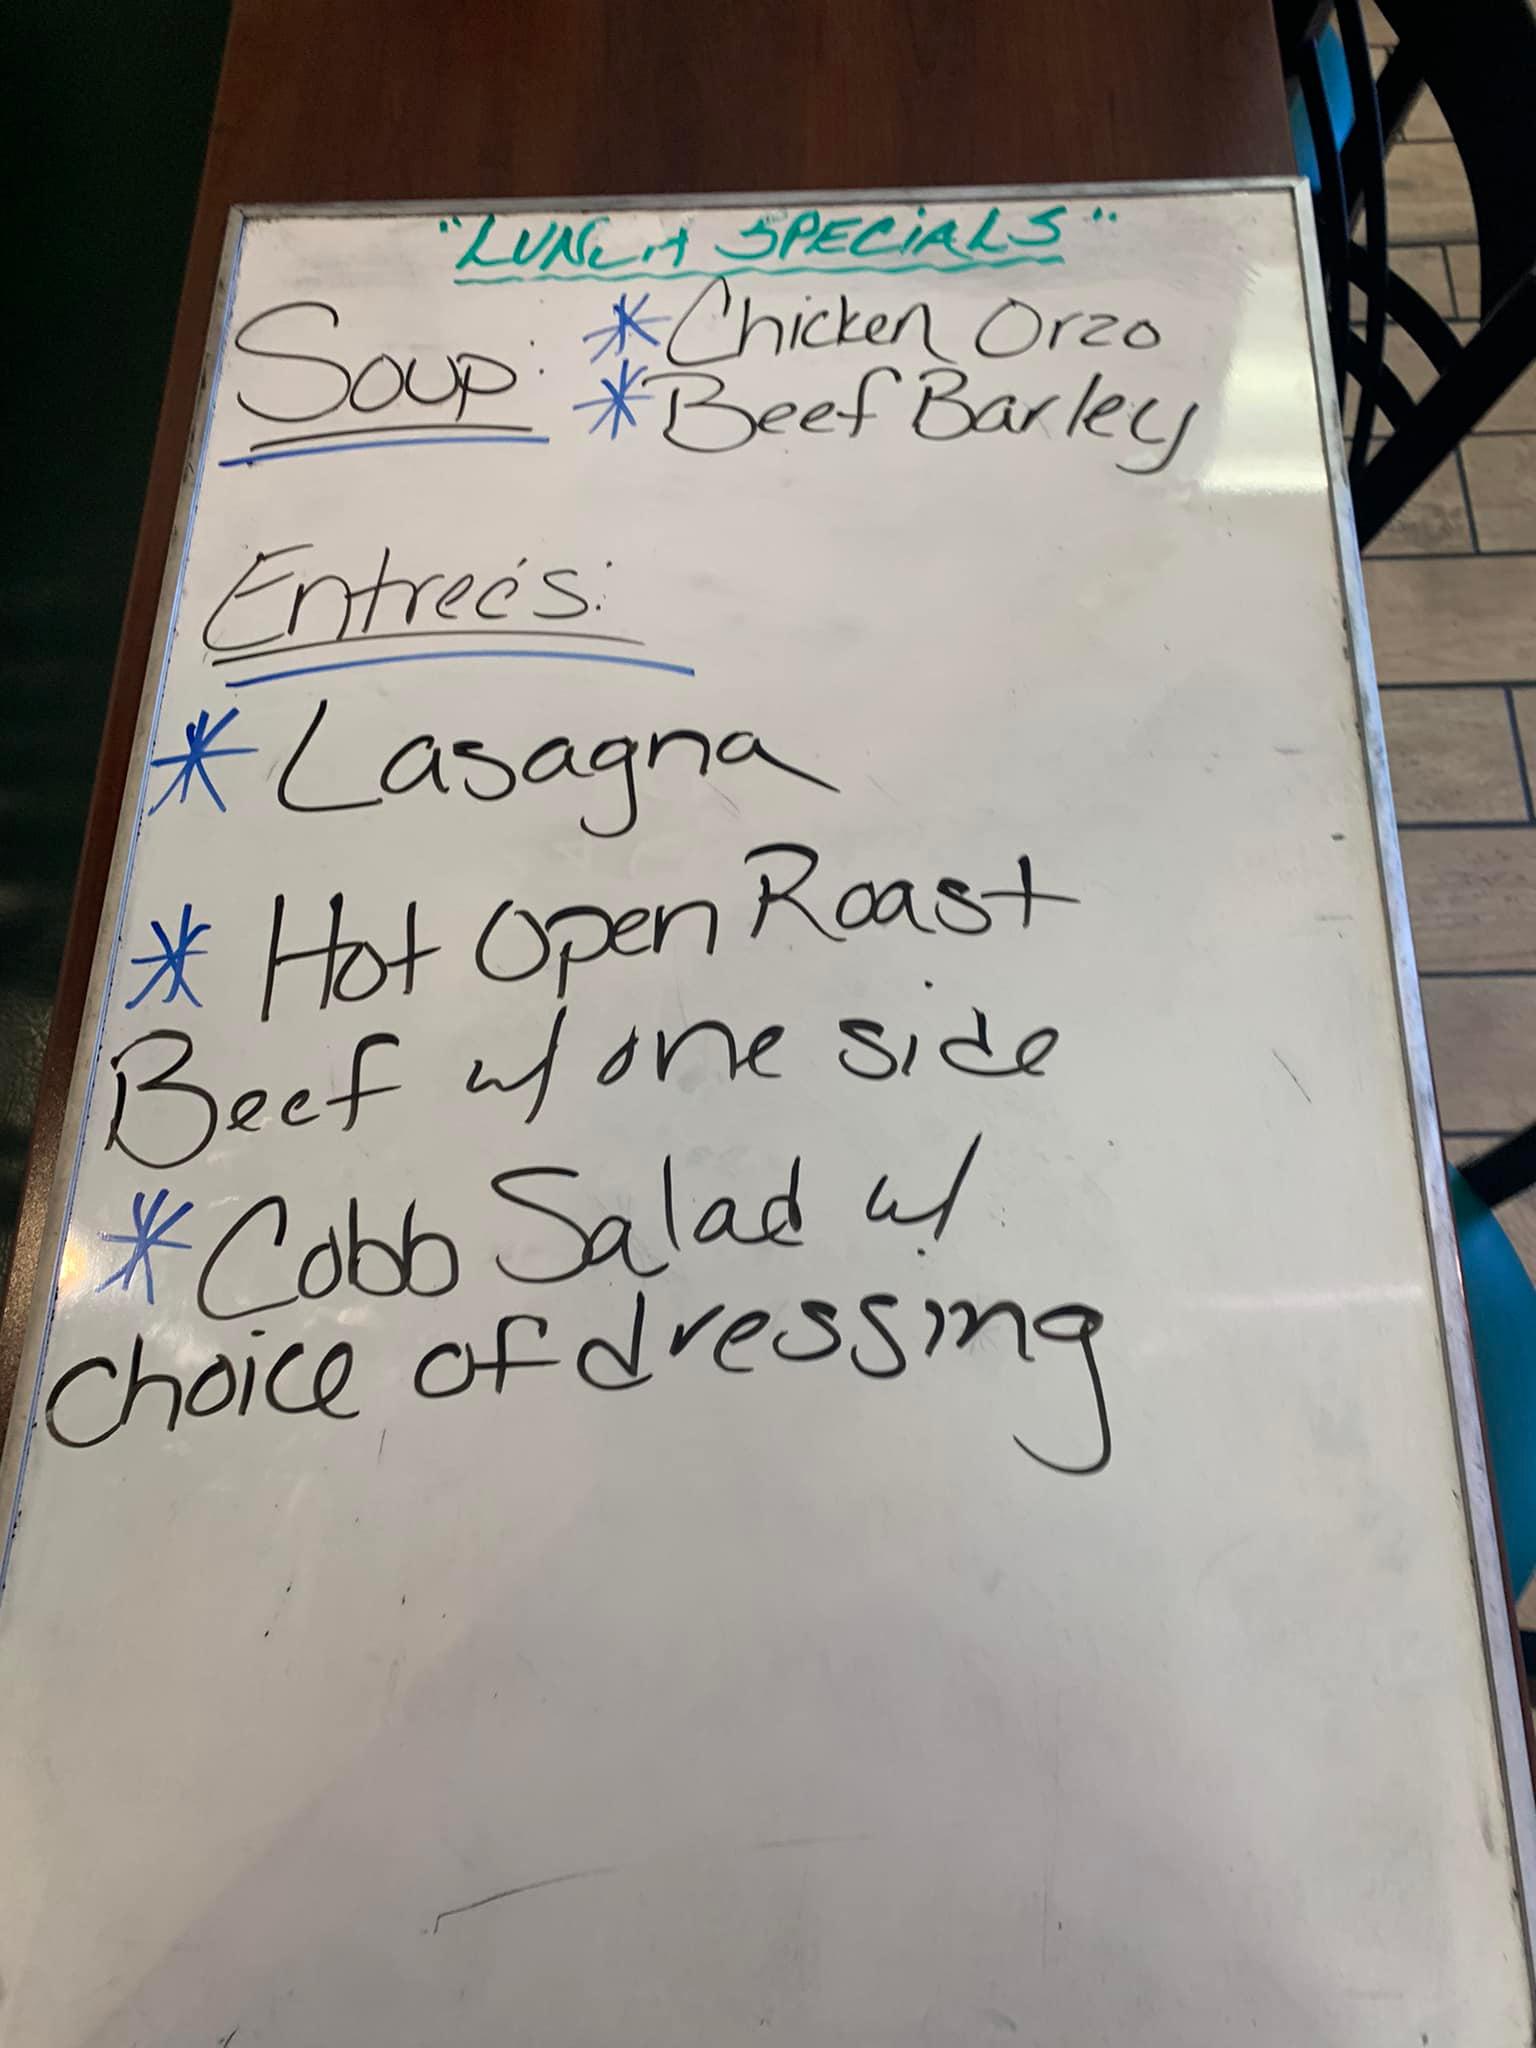 "LUNCH SPECIALS"
Soup: * Chicken Orzo
* Beef Barley
Entreés:
* Lasagna
* Hot Open Roast
Beef w/ one side
* Cobb Salad w/
choice of dressing